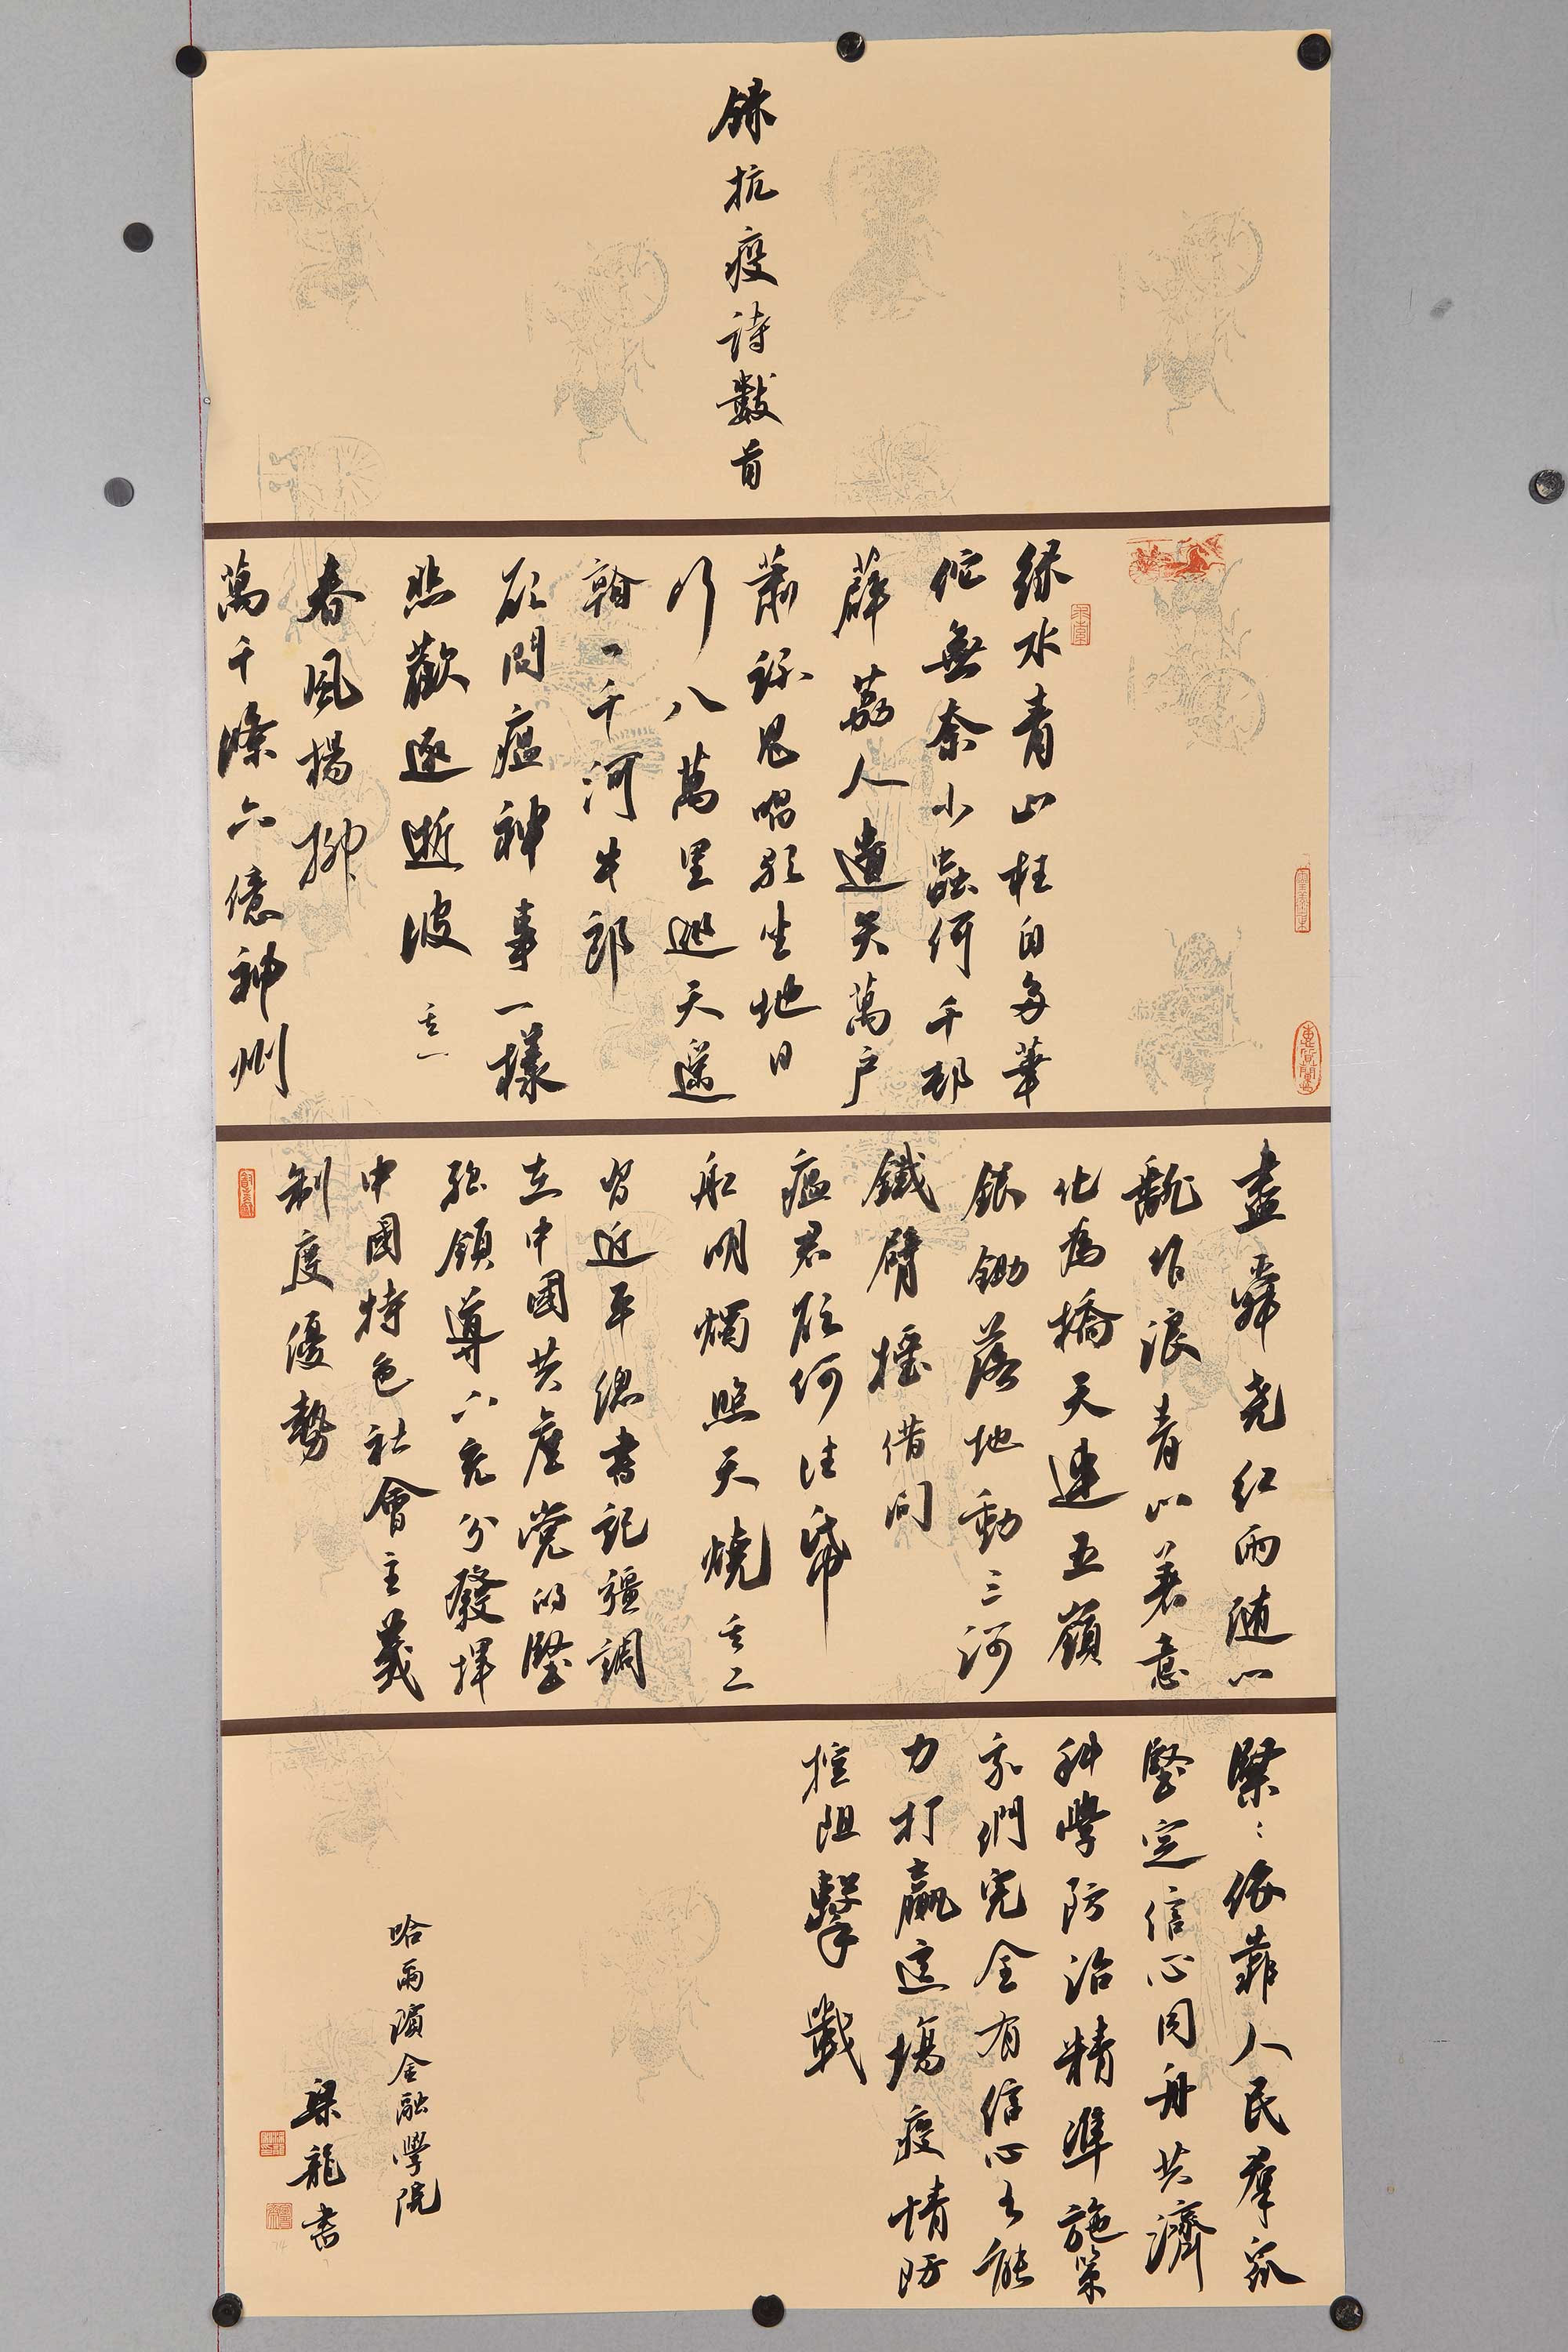 錄抗疫詩數首
綠水青山枉自多華
佗無奈小蟲何千邨
薜荔人遺矢萬戶
蕭疏鬼唱歌坐地日
行八萬里巡天遥
看一千河牛郎
欲問瘟神事一樣
悲歡逐逝波 其一
春風楊柳
萬千條六億神州
盡舜堯紅雨隨心
翻作浪青山著意
化為橋天連五嶺
銀鋤落地動三河
鐵臂搖借問
瘟君欲何往紙
船明燭照天燒 其二
習近平總書記强調
在中國共產党的堅
强領導下充分發揮
中國特色社會主義
制度優勢
緊:依靠人民羣眾
堅定信心同舟共濟
科學防治精準施策
我們完全有信心有能
力打贏這場疫情防
控阻擊戰
哈爾濱金融學院
梁龍書